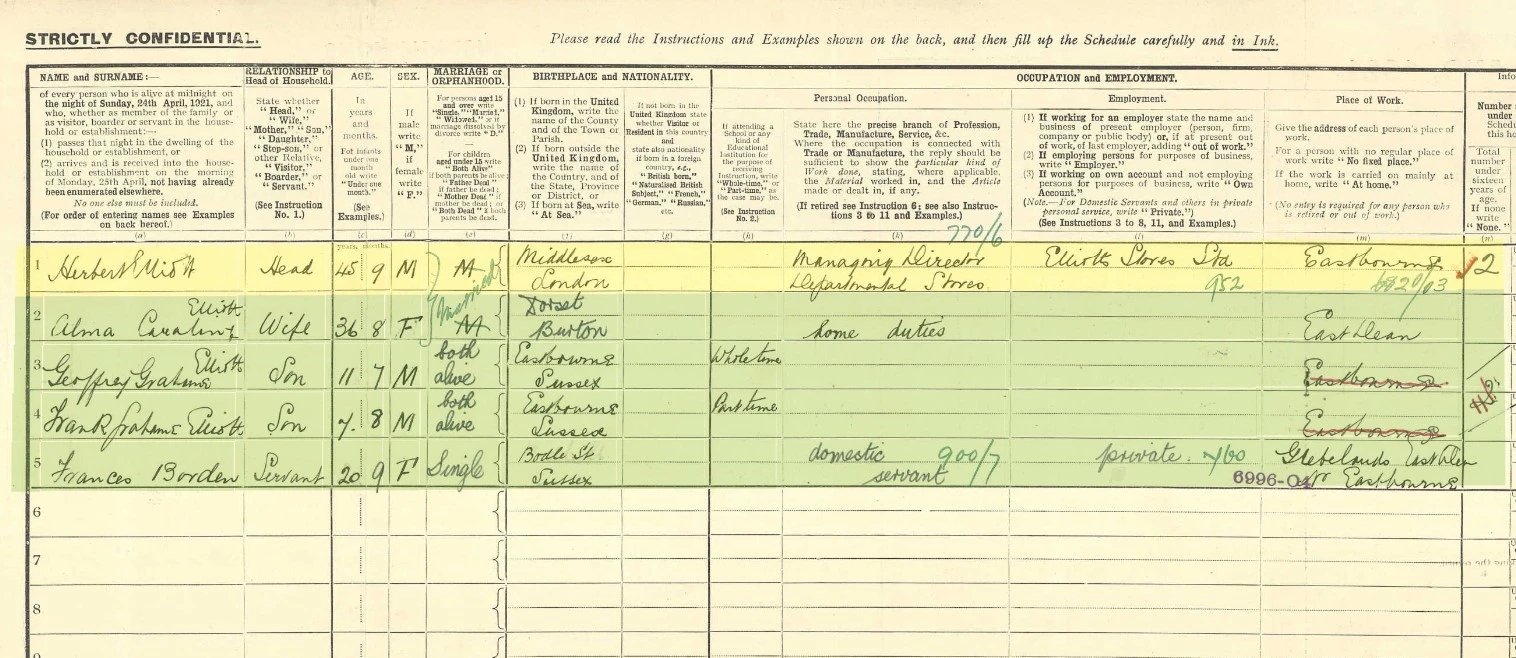 STRICTLY CONFIDENTIAL.
Please read the Instructions and Examples shown on the back, and then fill up the Schedule carefully and in Ink.
NAME and SURNAME:—
of every person who is alive at midnight on
the night of Sunday, 24th April, 1921, and
who, whether as member of the family or
as visitor, boarder or servant in the house-
hold or establishment:—
(1) passes that night in the dwelling of
the household or establishment, or
(2) arrives and is received into the house-
hold or establishment on the morning
of Monday, 25th April, not having already
been enumerated elsewhere.
No one else must be included.
(For order of entering names see Examples
on back hereof.)
(a)
RELATIONSHIP to
Head of Household.
State whether
"Head," or
"Wife,"
"Mother," "Son,"
"Daughter,"
"Step-son," or
other Relative,
"Visitor,"
"Boarder," or
"Servant."
(See Instruction
No. 1.)
(b)
AGE.
In
years
and
months.
For infants
under one
month old
write
"Under one
month."
(See
Examples.)
(c)
years. months.
SEX.
If
male
write
"M,"
if
female
write
"F."
(d)
MARRIAGE or
ORPHANHOOD.
For persons aged 15
and over write
"Single," "Married,"
"Widowed," or if
marriage dissolved by
divorce write "D."
For children
aged under 15 write
"Both Alive"
if both parents be alive;
"Father Dead"
if father be dead;
"Mother Dead" if
mother be dead; or
"Both Dead" if both
parents be dead.
(e)
BIRTHPLACE and NATIONALITY.
(1) If born in the United
Kingdom, write the
name of the County
and of the Town or
Parish.
(2) If born outside the
United Kingdom,
write the name of
the Country, and of
the State, Province
or District, or
(3) If born at Sea, write
"At Sea."
(f)
If not born in the
United Kingdom state
whether Visitor or
Resident in this country
and
state also nationality
if born in a foreign
country, e.g.,
"British born,"
"Naturalised British
Subject," "French,"
"German," "Russian,"
etc.
(g)
OCCUPATION and EMPLOYMENT.
If attending a
School or any
kind of
Educational
Institution for
the purpose of
receiving
Instruction, write
"Whole-time," or
"Part-time," as
the case may be.
(See Instruction
No. 2.)
(h)
Personal Occupation.
State here the precise branch of Profession,
Trade, Manufacture, Service, &c.
Where the occupation is connected with
Trade or Manufacture, the reply should be
sufficient to show the particular kind of
Work done, stating, where applicable,
the Material worked in, and the Article
made or dealt in, if any.
(If retired see Instruction 6; see also Instruc-
tions 3 to 11 and Examples.)
(k)
Employment.
(1) If working for an employer state the name and
business of present employer (person, firm,
company or public body) or, if at present out
of work, of last employer, adding "out of work."
(2) If employing persons for purposes of business,
write "Employer."
(3) If working on own account and not employing
persons for purposes of business, write "Own
Account."
(Note.—For Domestic Servants and others in private
personal service, write "Private.")
(See Instructions 3 to 8, 11, and Examples.)
(l)
Place of Work.
Give the address of each person's place of
work.
For a person with no regular place of
work write "No fixed place."
If the work is carried on mainly at
home, write "At home."
(No entry is required for any person who
is retired or out of work.)
(m)
Info
Number
under
Schedu
this ho
Total
number
under
sixteen
years of
age.
If none
write
"None."
(n)
770/6
1 Herbert Elliott Head 45 9 M M Middlesex
London Managing Director
Departmental Stores Elliotts Stores Ltd
952 Eastbourne
20/03 2
Married
2 Alma Caroline Elliott Wife 36 8 F M Dorset
Burton home duties East Dean
3 Geoffrey Grahame Elliott Son 11 7 M both
alive Eastbourne
Sussex Whole time Eastbourne
4 Frank Grahame Elliott Son 7 8 M both
alive Eastbourne
Sussex Part time Eastbourne
5 Frances Borden Servant 20 9 F Single Bodle St
Sussex domestic
servant 900/7 private
6996-04 Glebelands East Dean
Nr Eastbourne
6
7
8
9